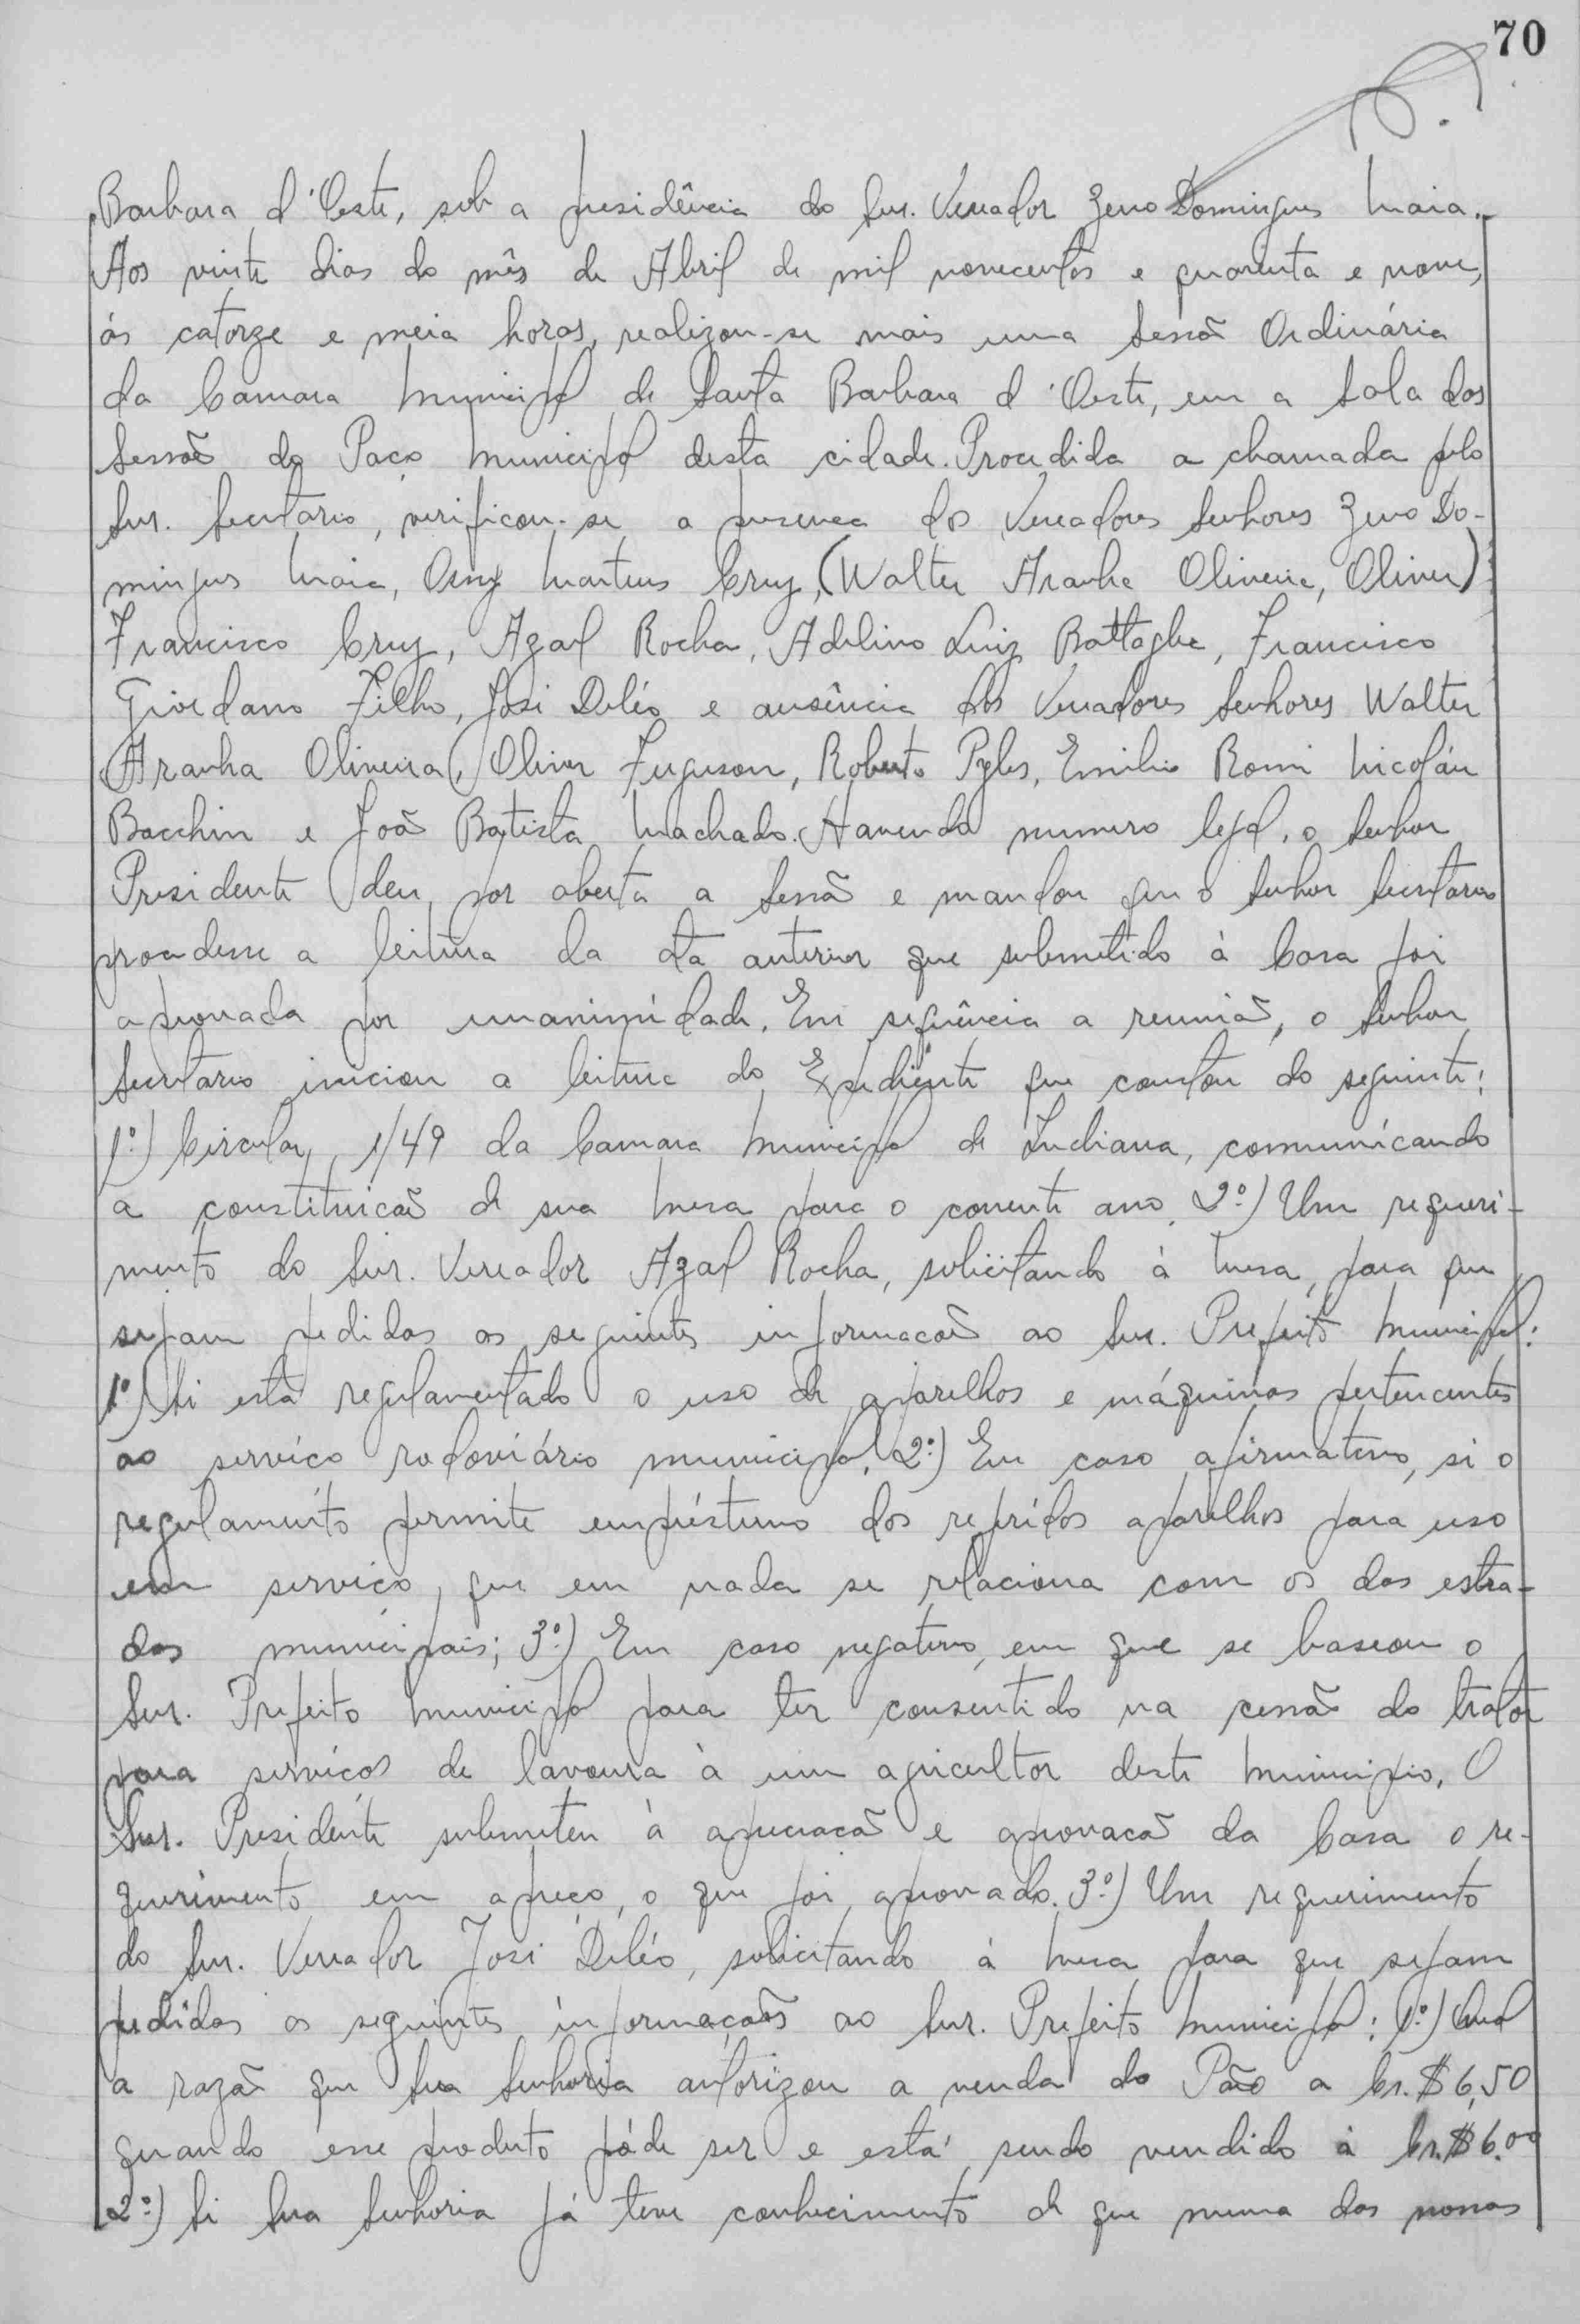 70
Barbara d'Oeste, sob a presidência do Snr. Vereador Zeno Domingues Maia.
Aos vinte dias do mês de Abril de mil novecentos e quarenta e nove,
ás catorze e meia horas, realizou-se mais uma Sessão Ordinária
da Camara Municipal de Santa Barbara d'Oeste, em a Sala das
Sessões do Paço Municipal desta cidade. Procedida a chamada pelo
Snr. Secretario, verificou-se a presença dos Vereadores Senhores Zeno Do-
mingues Maia, Osny Martins Cruz, (Walter Aranha Oliveira, Oliver)
Francisco Cruz, Azael Rocha, Adelino Luiz Battaglia, Francisco
Giordano Filho, José Deléo e ausência dos Vereadores Senhores Walter
Aranha Oliveira, Oliver Ferguson, Roberto Pyles, Emilio Romi Nicoláu
Bacchin e João Batista Machado. Havendo numero legal, o Senhor
Presidente deu por aberta a Sessão e mandou que o Senhor Secretario
procedesse a leitura da ata anterior que submetido à Casa foi
aprovada por unanimidade. Em sequência a reunião, o Senhor
Secretario iniciou a leitura do Expediente que constou do seguinte:
1º) Circular, 1/49 da Camara Municipal de Indiana, comunicando
a constituicão de sua Mesa para o corrente ano. 2º) Um requeri-
mento do Snr. Vereador Azael Rocha, solicitando à Mesa, para que
sejam pedidas as seguintes informacões ao Snr. Prefeito Municipal:
1º) Si está regulamentado o uso de aparelhos e máquinas pertencentes
ao servico rodoviário municipal. 2º) Em caso afirmativo, si o
regulamento permite empréstimo dos referidos aparelhos para uso
em servico, que em nada se relaciona com os das estra-
das municipais; 3º) Em caso negativo, em que se baseou o
Snr. Prefeito Municipal para ter consentido na cessão do trator
para serviços de lavoura à um agricultor deste Municipio. O
Snr. Presidente submeteu à apreciacão e aprovacão da Casa o re-
querimento em apreço, o que foi aprovado. 3º) Um requerimento
do Snr. Vereador José Deléo, solicitando à Mesa para que sejam
pedidas as seguintes informações ao Snr. Prefeito Municipal: 1º) Qual
a razão que Sua Senhoria autorizou a venda do Pão a Cr.$ 6,50
quando esse produto póde ser e está sendo vendido à Cr.$ 6.00
2º) Si Sua Senhoria já teve conhecimento de que numa das nossas